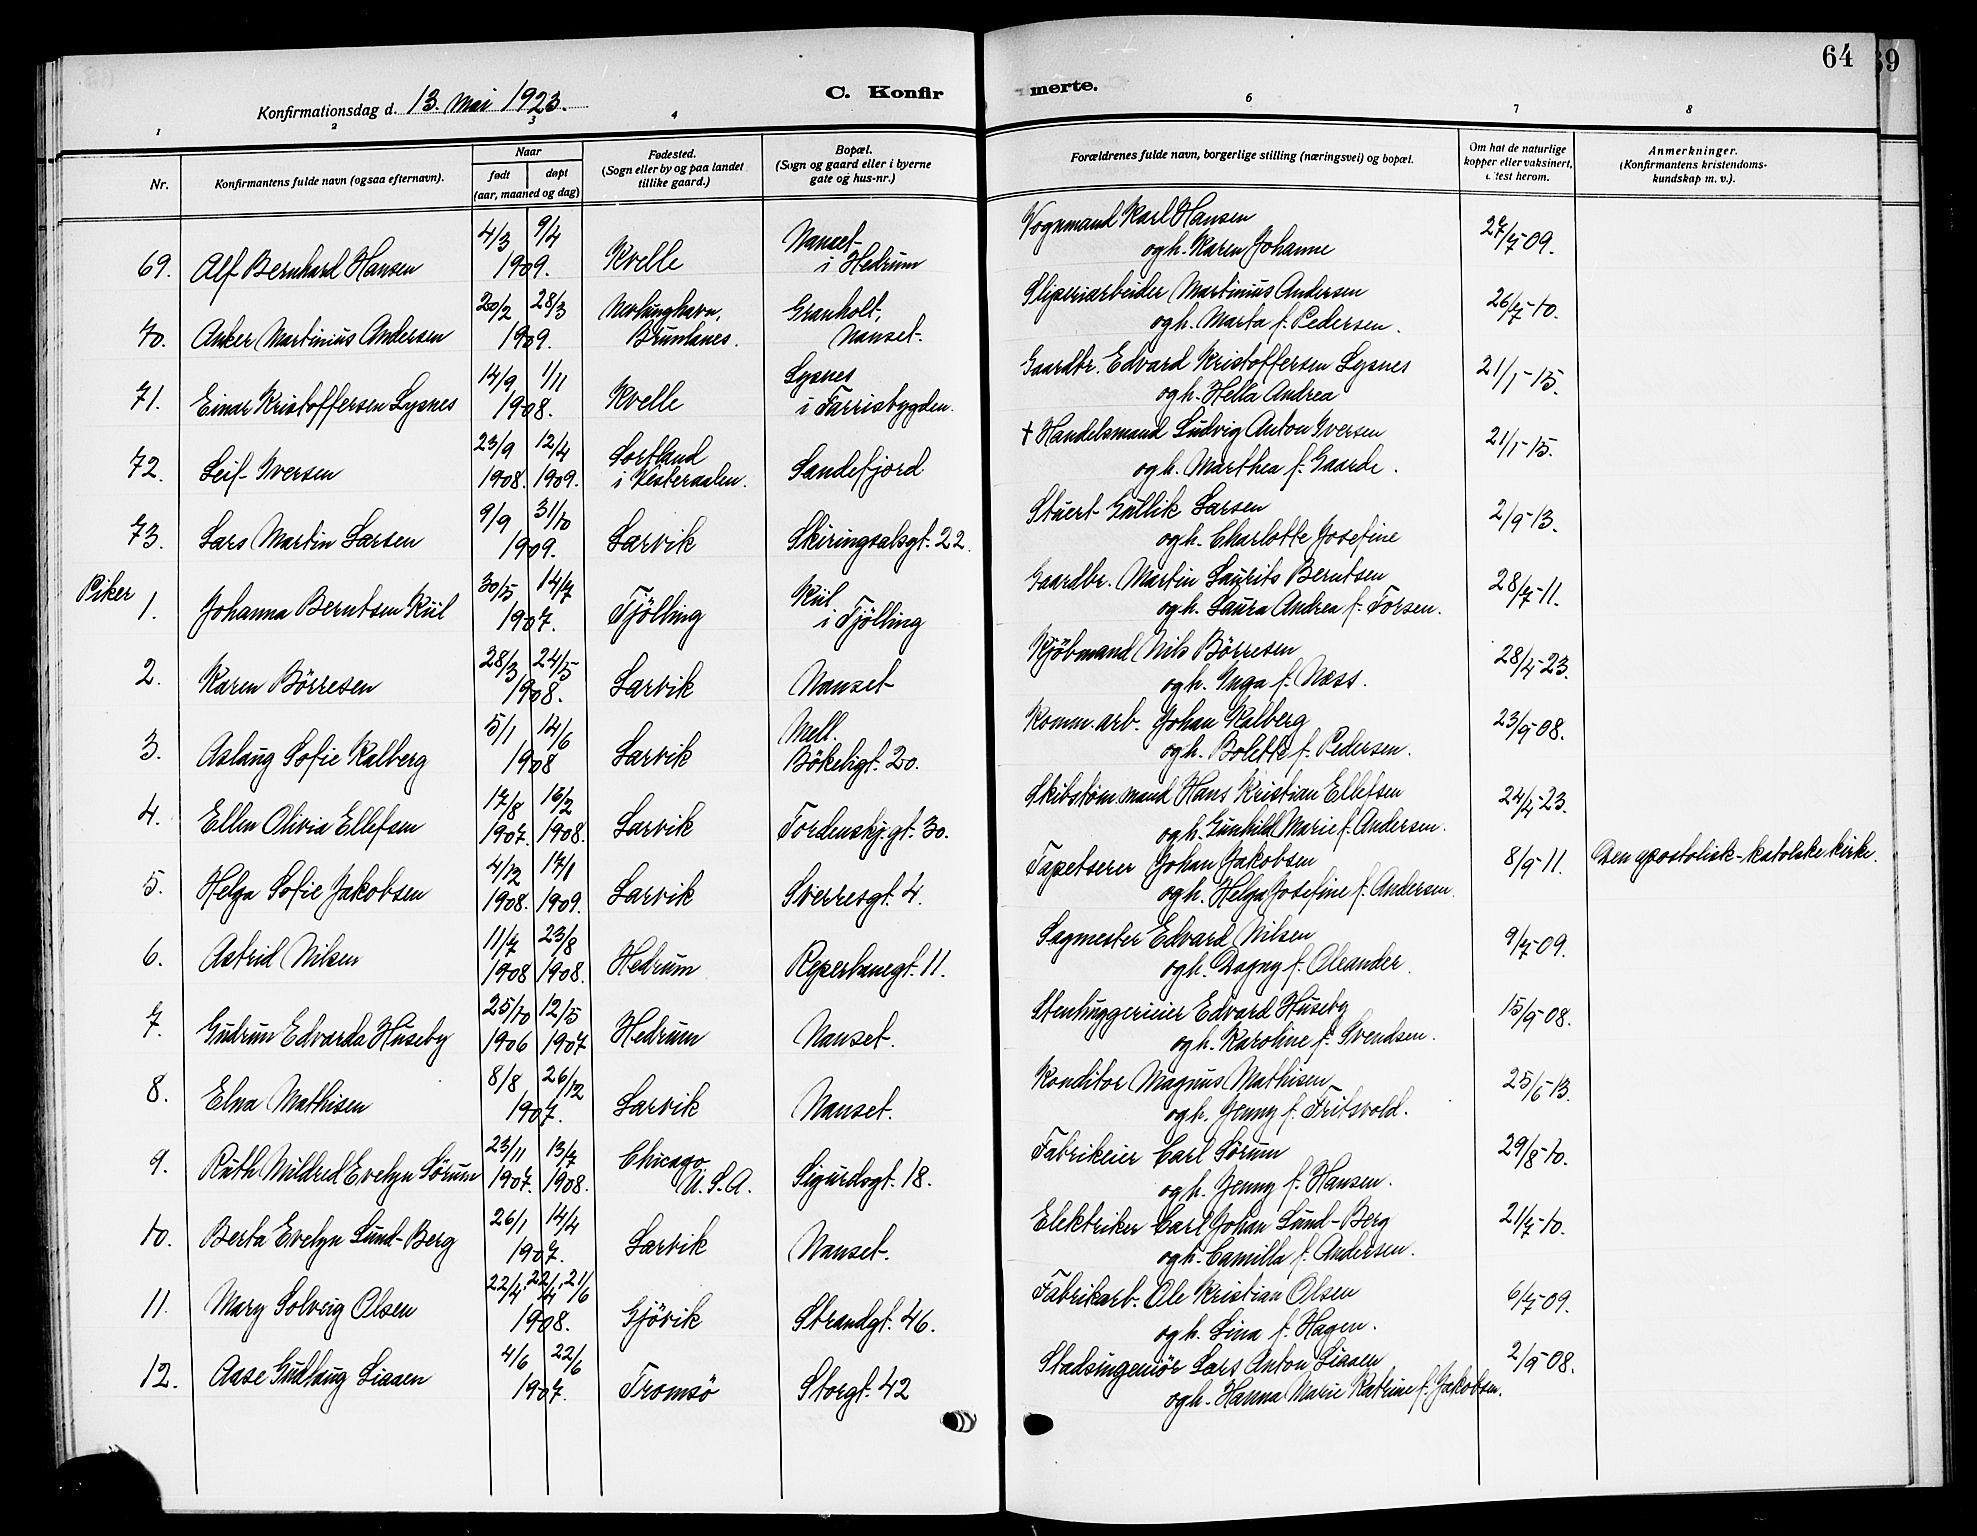 64
39
Konfirmationsdag d. 13. Mai 1923.
C. Konfirmerte.
1 2 3 4 6 7 8
Nr.
Konfirmantens fulde navn (ogsaa efternavn).
Naar
født døpt
(aar, maaned og dag)
Fødested.
(Sogn eller by og paa landet
tillike gaard.)
Bopæl.
(Sogn og gaard eller i byerne
gate og hus-nr.)
Forældrenes fulde navn, borgerlige stilling (næringsvei) og bopæl.
Om hat de naturlige
kopper eller vaksinert,
attest herom.
Anmerkninger.
(Konfirmantens kristendoms-
kundskap m. v.).
4/3 9/4 Nanset Vognmand Karl Hansen 27/7-09.
69. Alf Bernhard Hansen 1909. Kvelle i Hedrum og h. Karen Johanne
20/2 28/3 Nevlunghavn, Granholt, Sliperiarbeider Martinius Andersen 26/7-10.
70. Anker Martinius Andersen 1909. Brunlanes. Nanset. og h. Marta f. Pedersen.
14/9 1/11 Lysnes Gaardbr. Edvard Kristoffersen Lysnes 21/1-15.
71. Einar Kristoffersen Lysnes 1908. Kvelle i Farrisbygden. og h. Hella Andrea
23/9 12/4 Sortland + Handelsmand Ludvig Anton Iversen 21/1-15.
72. Leif Iversen 1908. 1909. i Vesteraalen. Sandefjord og h. Marthea f. Gaarde.
9/9 31/10 Stuert Gullik Larsen 2/9-13.
73. Lars Martin Larsen 1909. Larvik Skiringsalsgt. 22. og h. Charlotte Josefine
Piker 30/5 14/7 Kiil Gaardbr. Martin Laurits Berntsen 28/7-11.
1. Johanna Berntsen Kiil 1907. Tjölling i Tjölling og h. Laura Andrea f. Torsen.
28/3 24/5 Kjöbmand Nils Börresen 28/4-23.
2. Karen Börresen 1908. Larvik Nanset og h. Inga f. Næss.
5/1 14/6 Mell. Komm. arb. Johan Kalberg 23/9-08.
3. Aslaug Sofie Kalberg 1908 Larvik Bökeligt. 20. og h. Bolette f. Pedersen.
17/8 16/2 Skibstømmand Hans Kristian Ellefsen 24/4-23.
4. Ellen Olivia Ellefsen 1907. 1908. Larvik Tordenskj. gt. 30. og h. Gunhild Marie f. Andersen.
4/12 17/1 Tapetserer Johan Jakobsen 8/9-11. Den apostolisk-katolske kirke.
5. Helga Sofie Jakobsen 1908. 1909. Larvik Sverresgt. 4. og h. Helga Josefine f. Andersen.
11/7 23/8 Sagmester Edvard Nilsen 9/7-09.
6. Astrid Nilsen 1908 1908. Hedrum Reperbanegt. 11. og h. Dagny f. Oleander.
25/10 12/5 Stenhuggerieier Edvard Huseby 15/9-08.
7. Gudrun Edvarda Huseby 1906 1907 Hedrum Nanset. og h. Karoline f. Svendsen.
8/8 26/12 Konditor Magnus Mathisen 25/6-13.
8. Elna Mathisen 1907. Larvik Nanset. og h. Jenny f. Fritsvold.
23/11 13/7 Chicago Fabrikeier Carl Sörum 29/8-10.
9. Ruth Mildred Evelyn Sörum 1907. 1908. U.S.A. Sigurdsgt. 18. og h. Jenny f. Hansen.
26/1 14/4 Elektriker Carl Johan Lund-Berg 21/7-10.
10. Berta Evelyn Lund-Berg 1907. Larvik Nanset. og h. Camilla f. Andersen.
22/4 21/6 Fabrikarb. Ole Kristian Olsen 6/7-09.
11. Mary Solveig Olsen 1908. Gjövik Strandgt. 46. og h. Lina f. Hagen.
4/6 22/6 Stadsingeniör Lars Anton Liaaen 2/9-08.
12. Aase Gudlaug Liaaen 1907. Tromsö Storgt. 42 og h. Hanna Marie Katrine f. Jakobsen.